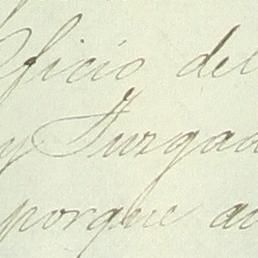 Oficio del
y Juzgad
porque ac